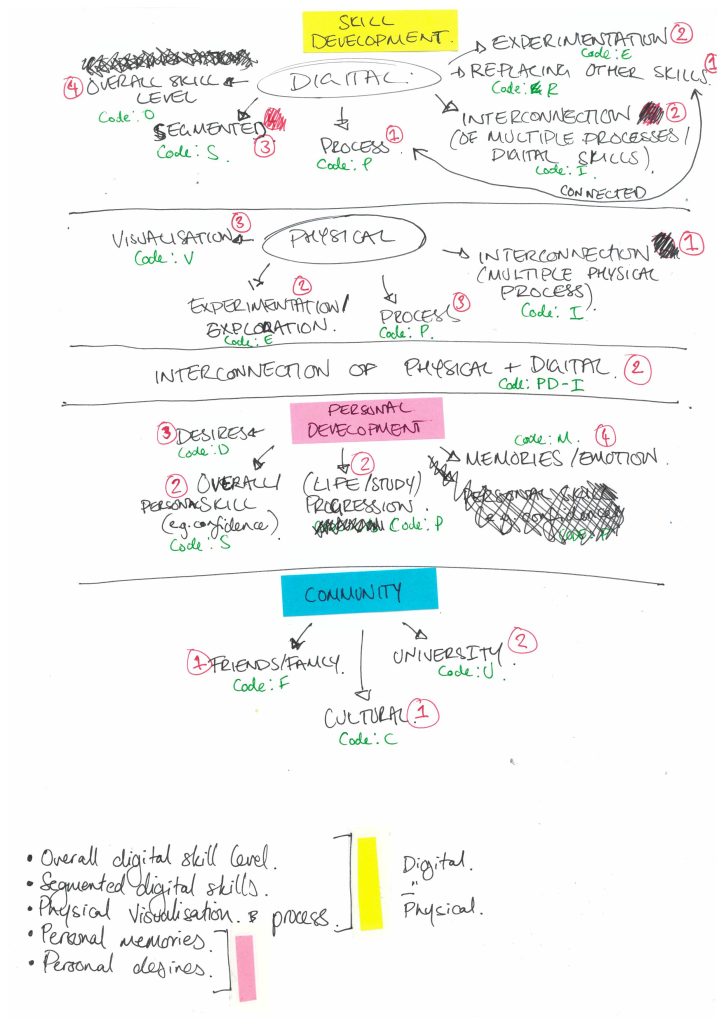 SKILL
DEVELOPMENT.
DIGITAL.
EXPERIMENTATION 2
Code: E
REPLACING OTHER SKILLS. 1
Code: R
4 OVERALL SKILL
LEVEL
Code: O
SEGMENTED
Code: S 3
PROCESS 1
Code: P
INTERCONNECTION 2
(OF MULTIPLE PROCESSES/
DIGITAL SKILLS)
Code: I
CONNECTED
PHYSICAL
VISUALISATION 3
Code: V
INTERCONNECTION 1
(MULTIPLE PHYSICAL
PROCESS)
Code: I
2
EXPERIMENTATION/
EXPLORATION.
Code: E
PROCESS 3
Code: P.
INTERCONNECTION OF PHYSICAL + DIGITAL. 2
Code: PD-I
PERSONAL
DEVELOPMENT
3 DESIRES
Code: D
Code: M. 4
MEMORIES/EMOTION.
2 OVERALL/
PERSONAL SKILL
(eg. confidence)
Code: S
2
(LIFE/STUDY)
PROGRESSION
Code: P
PERSONAL SKILL
(e.g. confidence)
COMMUNITY
1 FRIENDS/FAMILY.
Code: F
UNIVERSITY 2
Code: U
CULTURAL 1
Code: C
• Overall digital skill level.
• Segmented digital skills.
• Physical visualisation. & process.
• Personal memories.
• Personal desires.
Digital.
— " —
Physical.